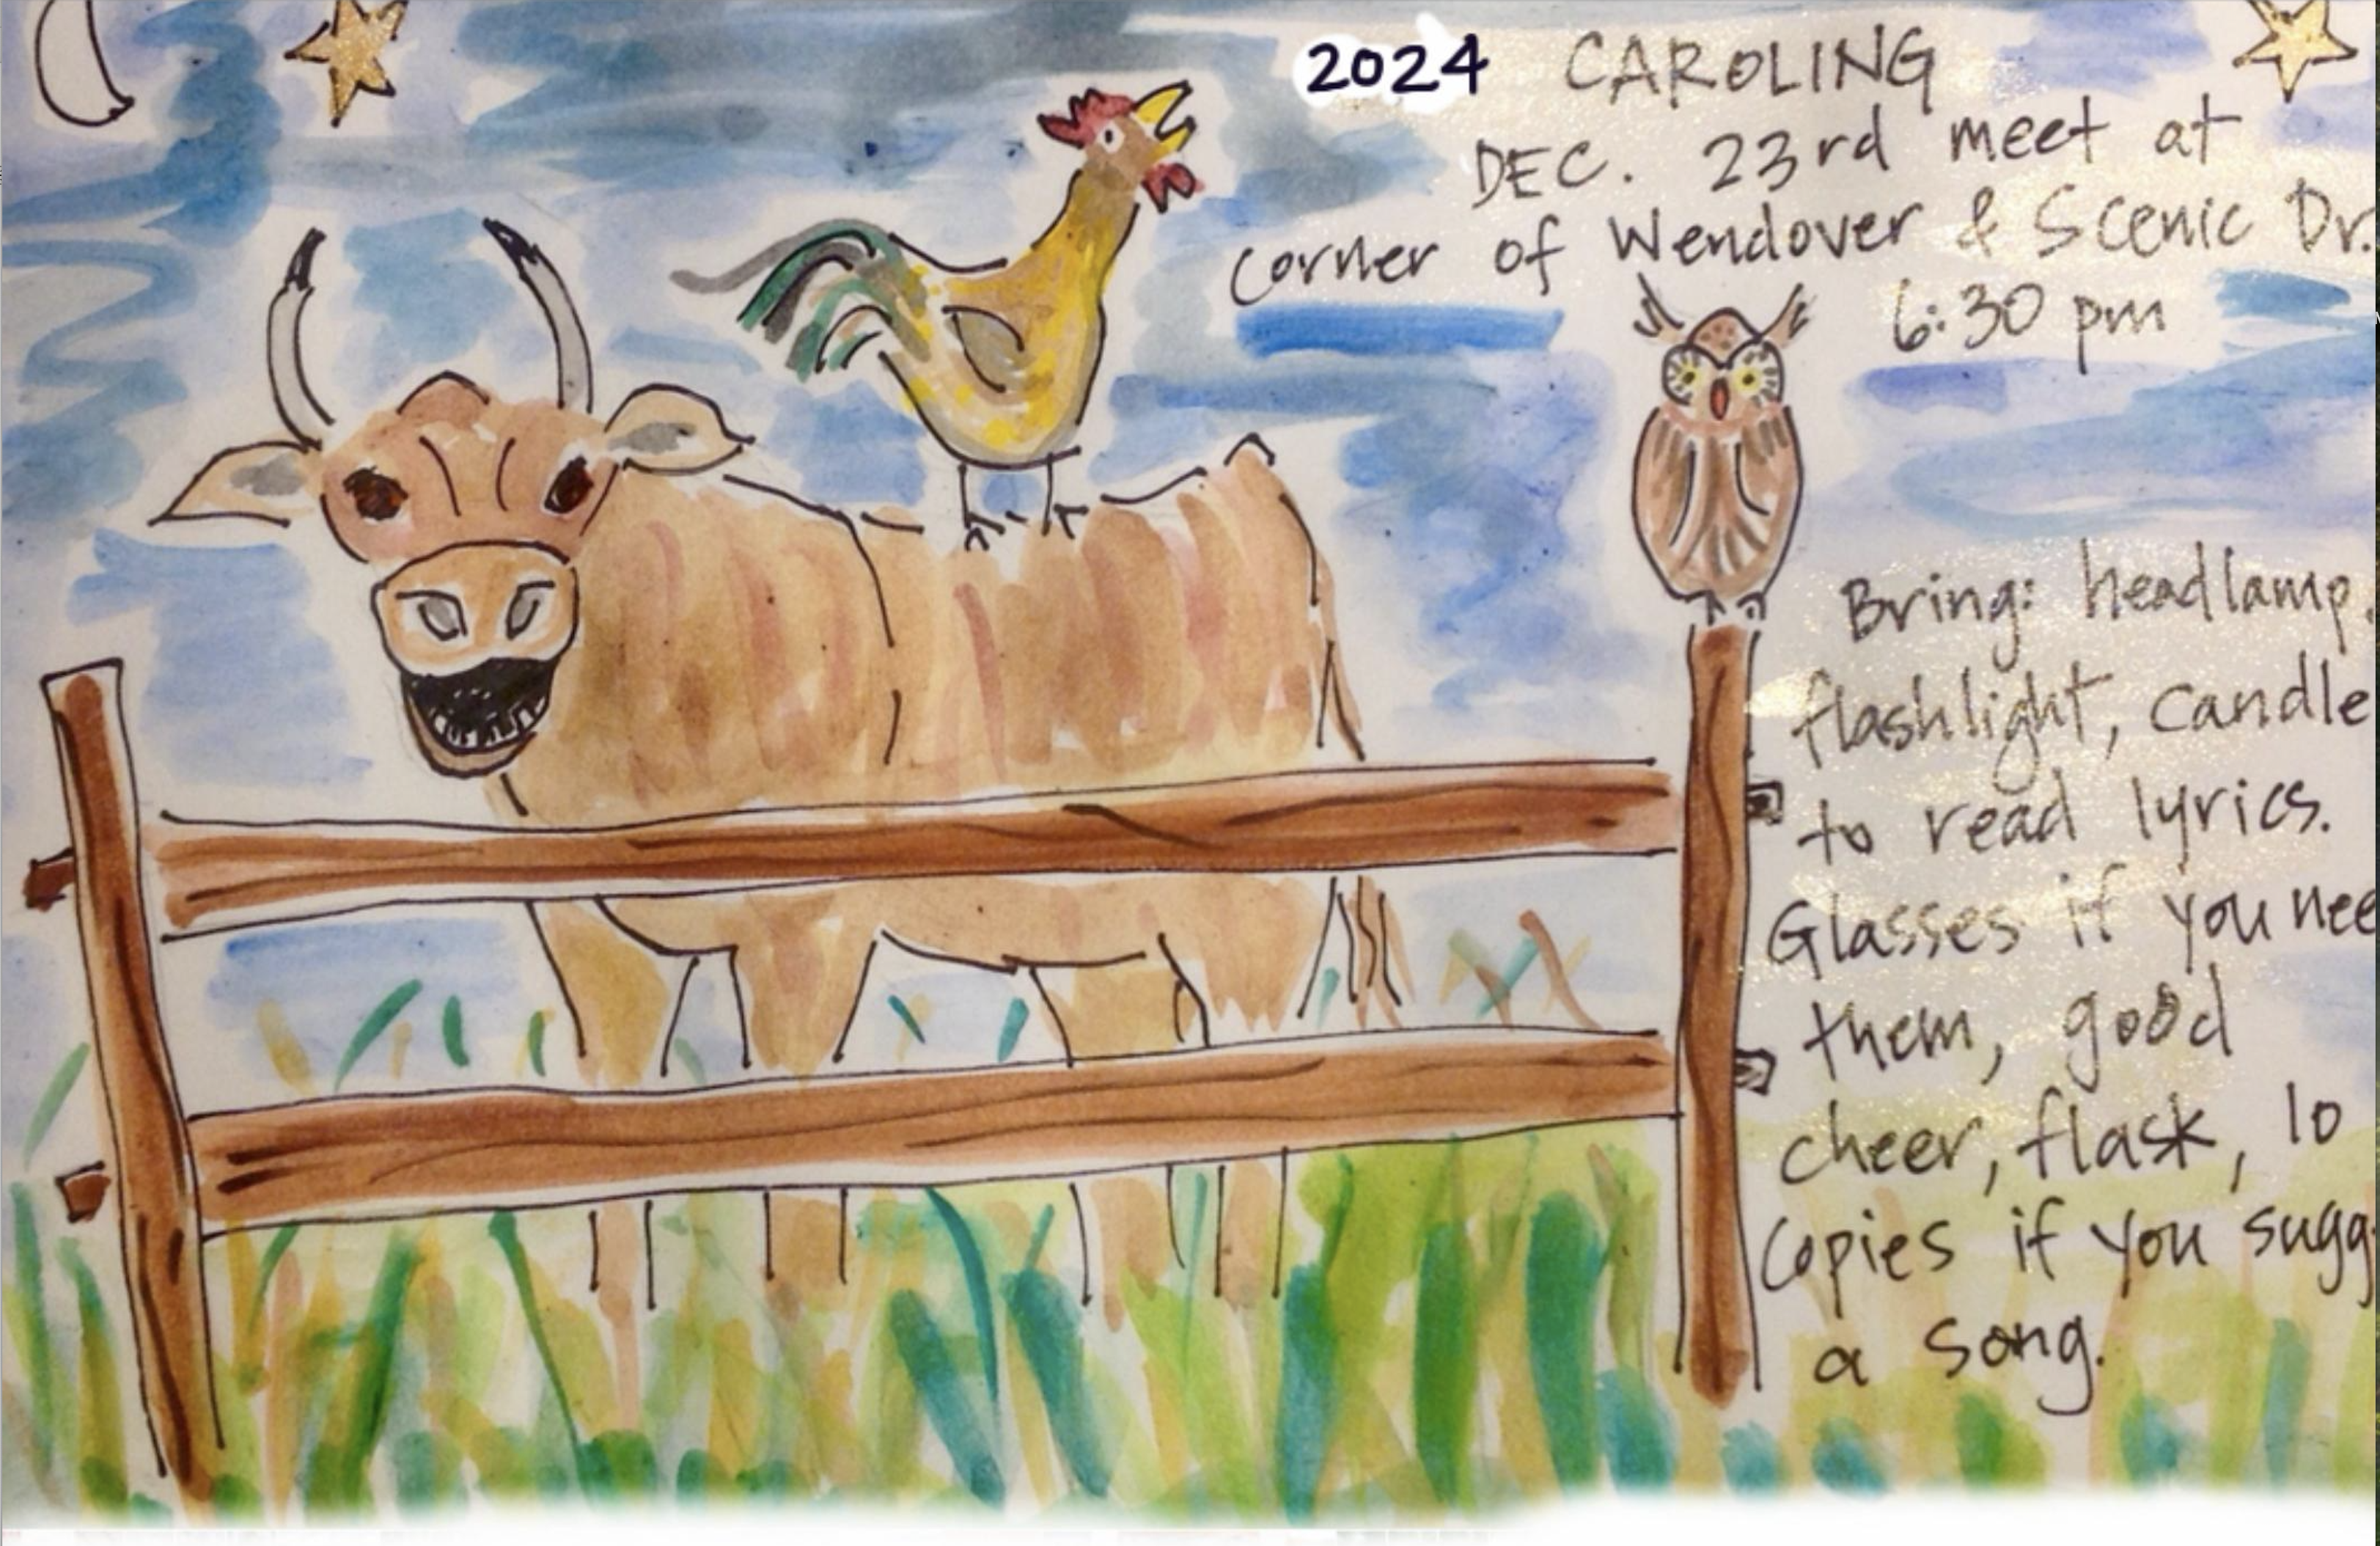 2024 CAROLING
DEC. 23rd meet at
corner of Wendover & Scenic Dr.
6:30 pm
Bring: headlamp,
flashlight, candle
to read lyrics.
Glasses if you nee
them, good
cheer, flask, 10
copies if you sugg
a song.